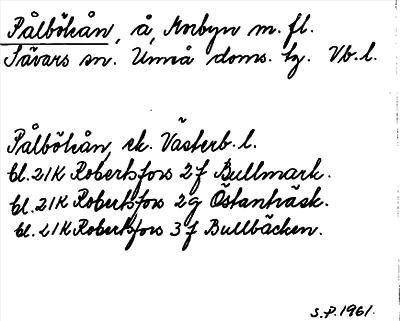 Pålböhån, å, Norbyn m. fl.
Sävars sn. Umeå doms. hg. Vb. l.
Pålböhån, ek. Västerb. l.
bl. 21K Robertsfors 2f Bullmark.
bl. 21K Robertsfors 2g Östanträsk.
bl. 21K Robertsfors 3f Bullbäcken.
S.P. 1961.